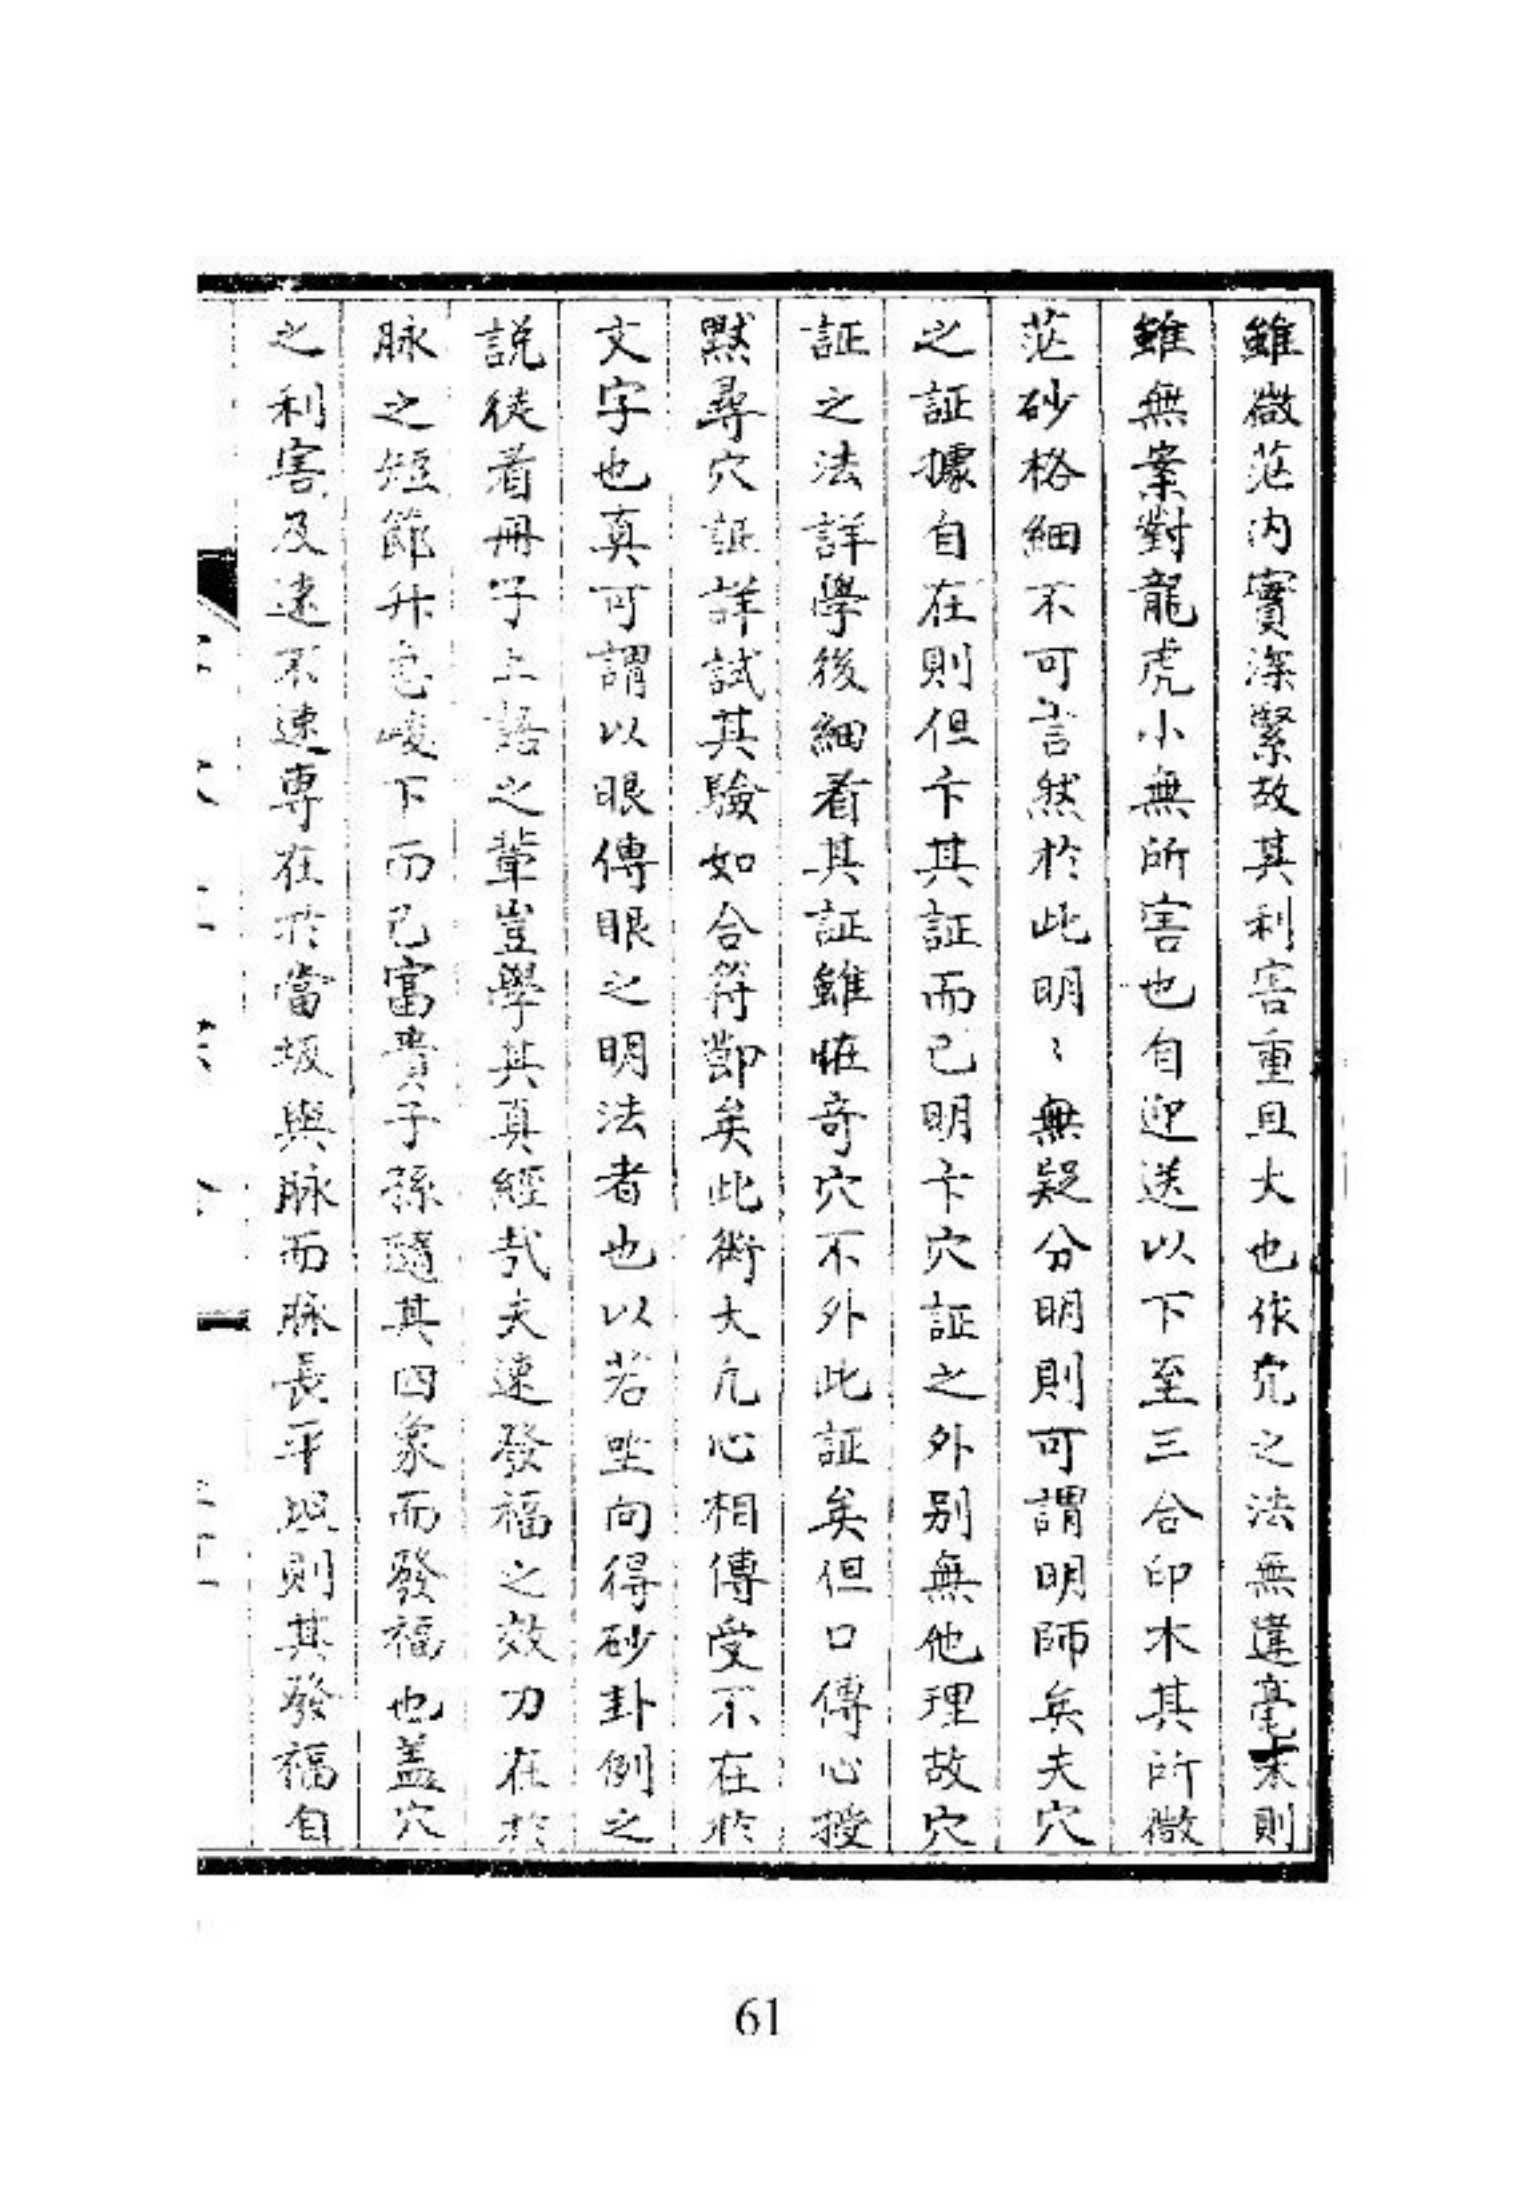 雖微茫內實深緊故其利害重且大也作穴之法無違毫末則
雖無案對龍虎小無所害也自迎送以下至三合印木其所微
茫砂格細不可言然於此明〻無疑分明則可謂明師矣夫穴
之証據自在則但卞其証而已明卞穴証之外別無他理故穴
証之法詳學後細看其証雖怪奇穴不外此証矣但口傳心授
默尋穴証詳試其驗如合符節矣此術大凡心相傳受不在於
文字也真可謂以眼傳眼之明法者也以若坐向得砂卦例之
說徒着冊子上語之輩豈學其真經哉夫速發福之效力在於
脉之短節升峻下而已富貴子孫隨其四象而發福也盖穴
之利害及速不速專在於當坂與脉而脉長平坦則其發福自
61